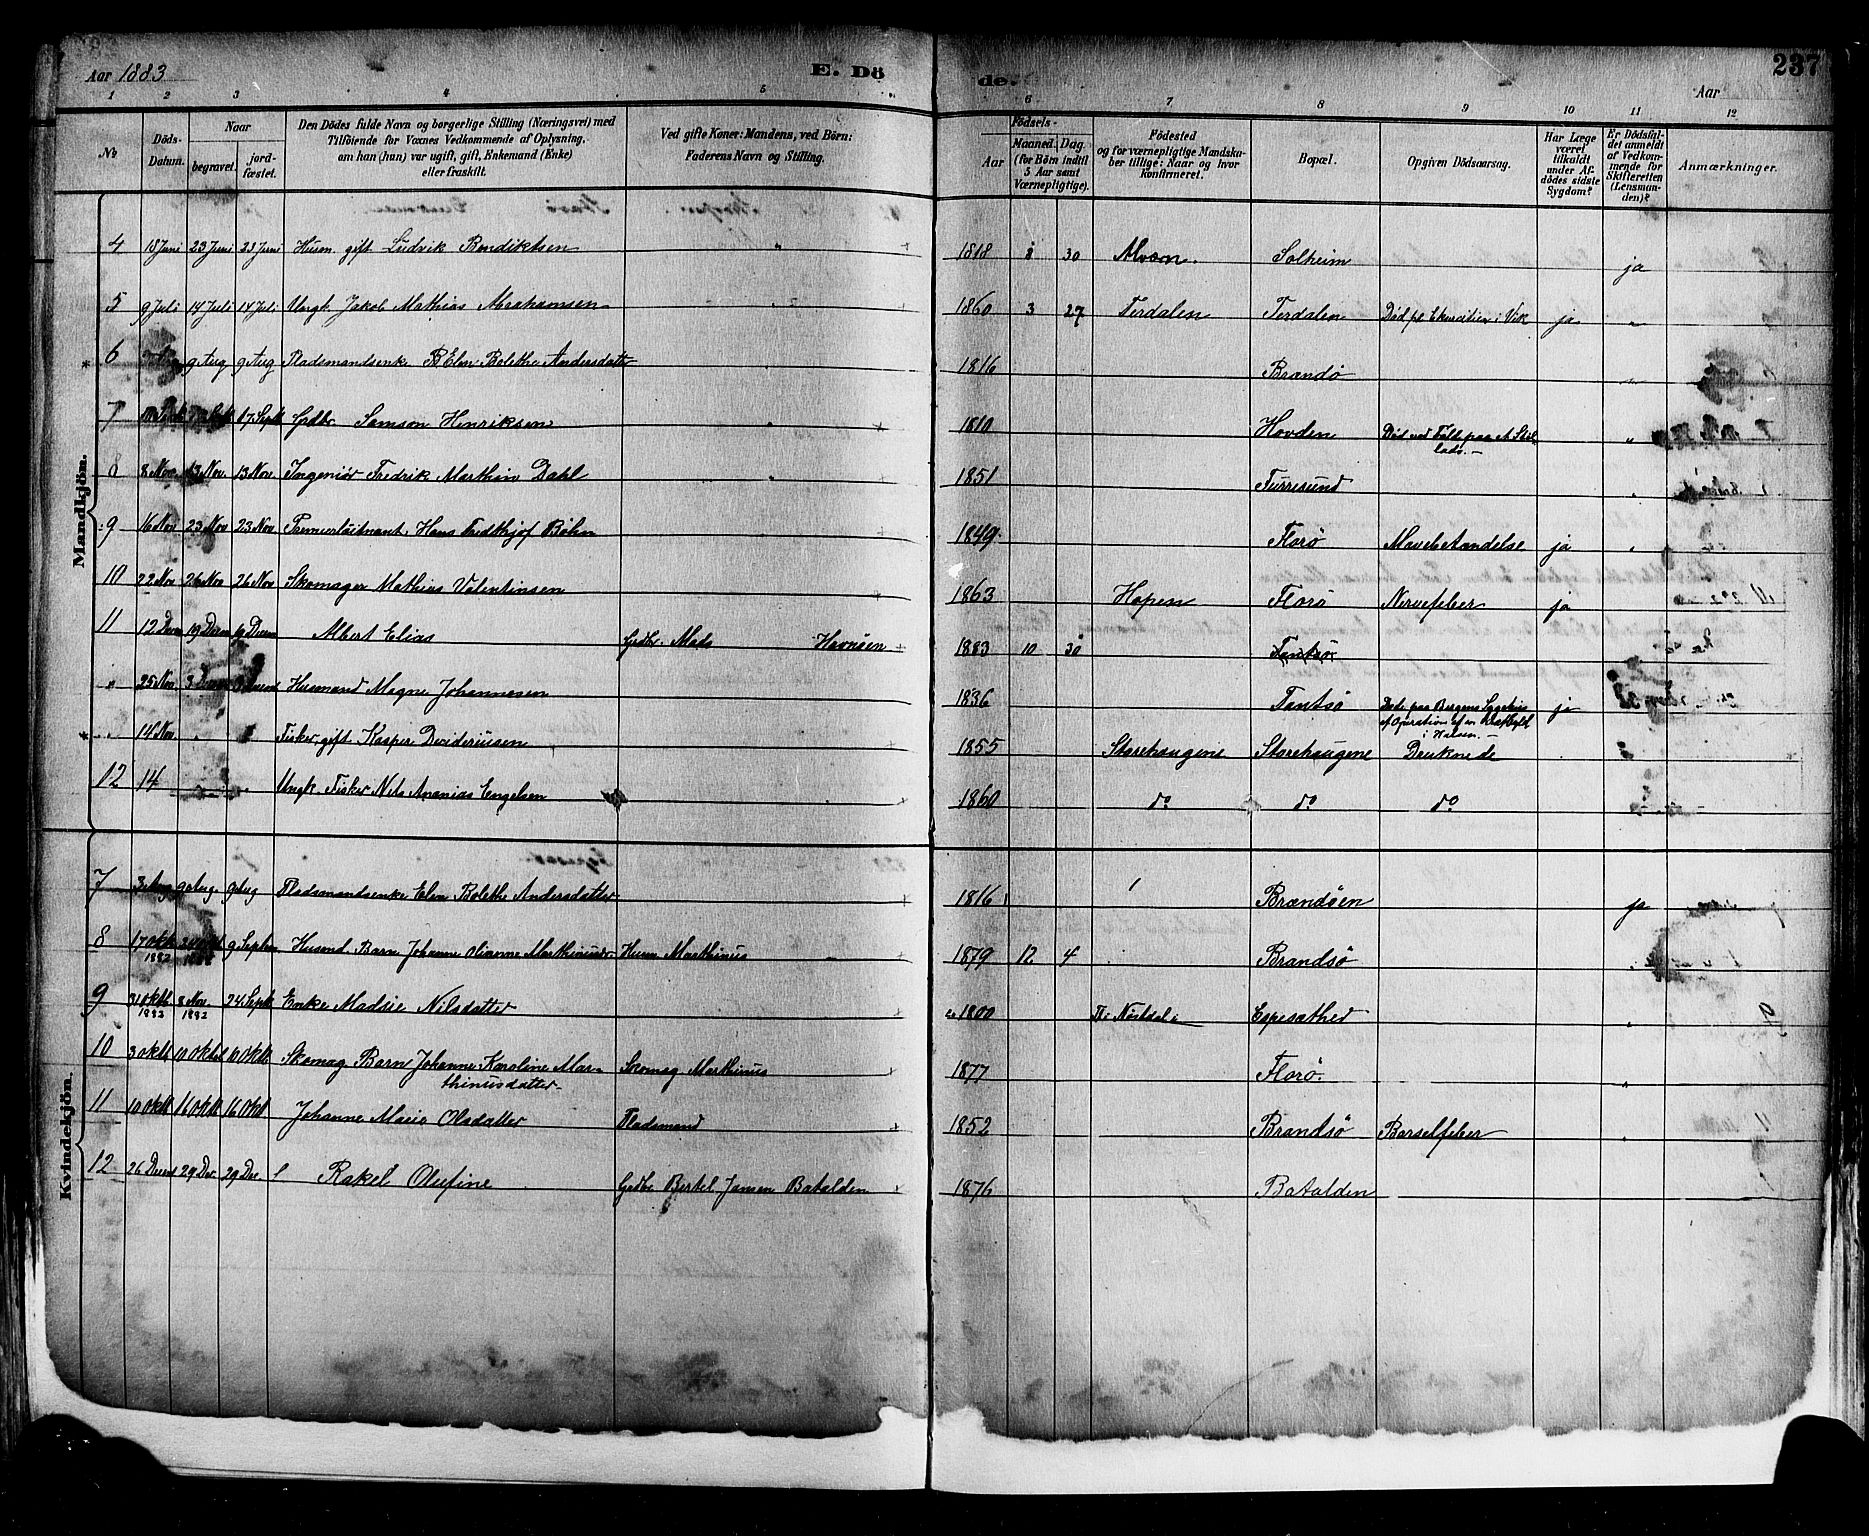 Aar 1883 E. Dö de. Aar 237
1 2 3 4 5 6 7 8 9 10 11 12
№ Döds-Datum. Naar begravet. jordfæstet. Den Dödes fulde Navn og borgerlige Stilling (Næringsvei) med Tilföiende for Voxnes Vedkommende af Oplysning, om han (hun) var ugift, gift, Enkemand (Enke) eller fraskilt. Ved gifte Koner: Mandens, ved Börn: Faderens Navn og Stilling. Födsels- Aar Maaned. Dag. (for Börn indtil 5 Aar samt Værnepligtige). Födested og for værnepligtige Mandskaber tillige: Naar og hvor konfirmeret. Bopæl. Opgiven Dödsaarsag. Har Læge været tilkaldt under Afdödes sidste Sygdom? Er Dödsfaldet anmeldt af Vedkommende for Skifteretten (Lensmanden)? Anmærkninger.
Mandkjön.
4 18 Juni 23 Juni 23 Juni Husm. gift Ludvik Bendiktsen " 1818 8 30 Alvorn. Solheim ja
5 9 Juli 14 Juli 14 Juli Ungk. Jakob Mathias Abrahamsen " 1860 3 27 Terdalen Terdalen Död på Ekercitien i Vik ja "
* 6 9 Aug 9 Aug Pladsmandsenke Elen Bolethe Andersdatter 1816 Brandö "
7 17 Sept Grdbr. Samson Henriksen " 1810 Hovden Död ved Fald paa et Stillads. "
8 8 Nov. 13 Nov. 13 Nov. Ingeniör Fredrik Marthin Dahl " 1851 Furresund "
9 16 Nov 23 Nov 23 Nov Premierlöitnant. Hans Fridthjof Böhn 1849. Florö Mavebetændelse ja "
10 22 Nov 26 Nov 26 Nov Skomager Mathias Valentinsen 1863 Hopen Florö Nervefeber ja
11 12 Decem 19 Decem 19 Decem Albert Elias Grdbr. Mads Havnsen 1883 10 30 Tantsö
" 25 Nov. Husmand Magne Johannesen 1836 Tantsö Döde paa Bergens Sygehus af Operation af en i Halsen. ja
* " 14 Nov. " Fisker, gift Kasper Desideriussen 1855 Storehaugene Storehaugene Druknede
12 14 Ungk. Fisker Nils Ananias Engelsen 1860 do do do
Kvindekjön.
7 3 Aug 9 Aug. 9 Aug Pladsmandsenke Elen Bolethe Andersdatter 1816 Brandöen ja
8 17 Okt 1882 9 Septem Husmd. Barn Johanne Oliverne Marthinusdr Husm Marthinus 1879 12 4 Brandsö "
9 31 Oktb. 1882 8 Nov. 1882 24 Septb Enke Madsie Nilsdatter 1800 Nordal Espesæthed "
10 3 Oktb 10 Oktob 10 Oktb Skomag Barn Johanne Karoline Marthinusdatter Skomag Marthinus 1877 Florö. "
11 10 Oktb 16 Oktb 16 Oktb Johanne Marie Olsdatter Pladsmand 1852 Brandsö Barselfeber "
12 26 Decemb 29 Dec. 29 Dec Rakel Olufine Grdbr Bertel Jansen Batalden 1876 Batalden